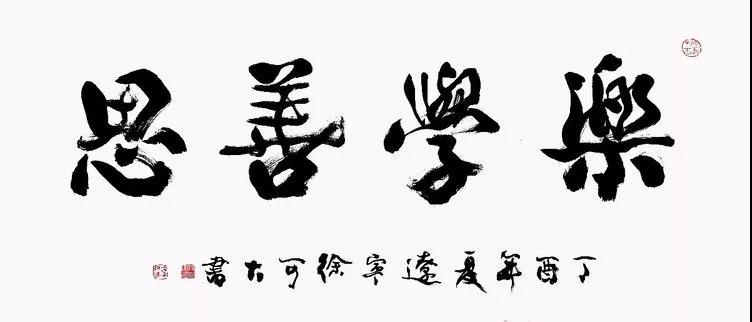 樂學善思
丁酉年夏遼寧徐可大書